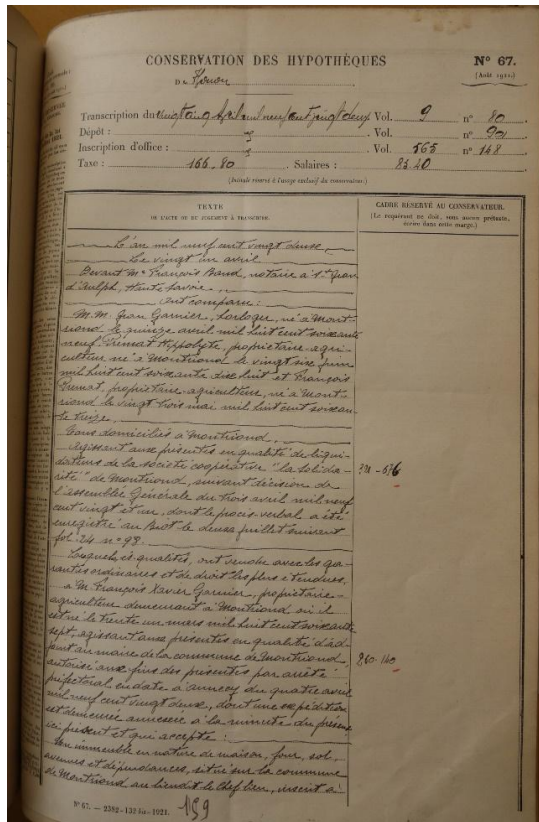 CONSERVATION DES HYPOTHÈQUES
N° 67.
(Août 1921.)
De
Transcription du vingt cinq Avril mil neuf cent vingt deux Vol. 9 n° 80
Dépôt : Vol. n° 90
Inscription d'office : Vol. 565 n° 148
Taxe : 166,80 . Salaires : 83 20
(Intitulé réservé à l'usage exclusif du conservateur.)
TEXTE
DE L'ACTE OU DU JUGEMENT À TRANSCRIRE.
CADRE RÉSERVÉ AU CONSERVATEUR.
(Le requérant ne doit, sous aucun prétexte,
écrire dans cette marge.)
L'an mil neuf cent vingt deux,
Le vingt un avril
Devant Me François Baud, notaire à St Jean
d'Aulph, Haute Savoie.
Ont comparu :
M.M. Jean Garnier, horloger, né à Mont-
riond le quinze avril mil huit cent soixante
neuf Premat Hippolyte, propriétaire-agri-
culteur né à Montriond le vingt six juin
mil huit cent soixante dix huit et François
Premat, propriétaire-agriculteur, né à Mont-
riond le vingt trois mai mil huit cent soixan-
te treize,
Tous domiciliés à Montriond.
Agissant aux présentes en qualité de liqui-
dateurs de la société coopérative "la Solida-
rité" de Montriond, suivant décision de
l'assemblée Générale du trois avril mil neuf
cent vingt et un, dont le procès-verbal a été
enregistré au Biot le deux juillet suivant
fol. 24 n° 98.
Lesquels ès qualités, ont vendu avec les ga-
ranties ordinaires et de droit les plus étendues,
à M. François Xavier Garnier, propriétaire-
agriculteur demeurant à Montriond où il
est né le trente un mars mil huit cent soixante
sept, agissant aux présentes en qualité d'ad-
joint au maire de la commune de Montriond,
autorisé aux fins des présentes par arrêté
préfectoral en date à Annecy du quatre avril
mil neuf cent vingt deux, dont une expédition
est demeurée annexée à la minute des présentes
ici présent et qui accepte :
Un immeuble en nature de maison, four, sol,
avenues et dépendances, situé sur la commune
de Montriond au lieudit le Chef lieu, inscrit à
321-676
260-140
N° 67. — 2382-132 bis-1921.
159